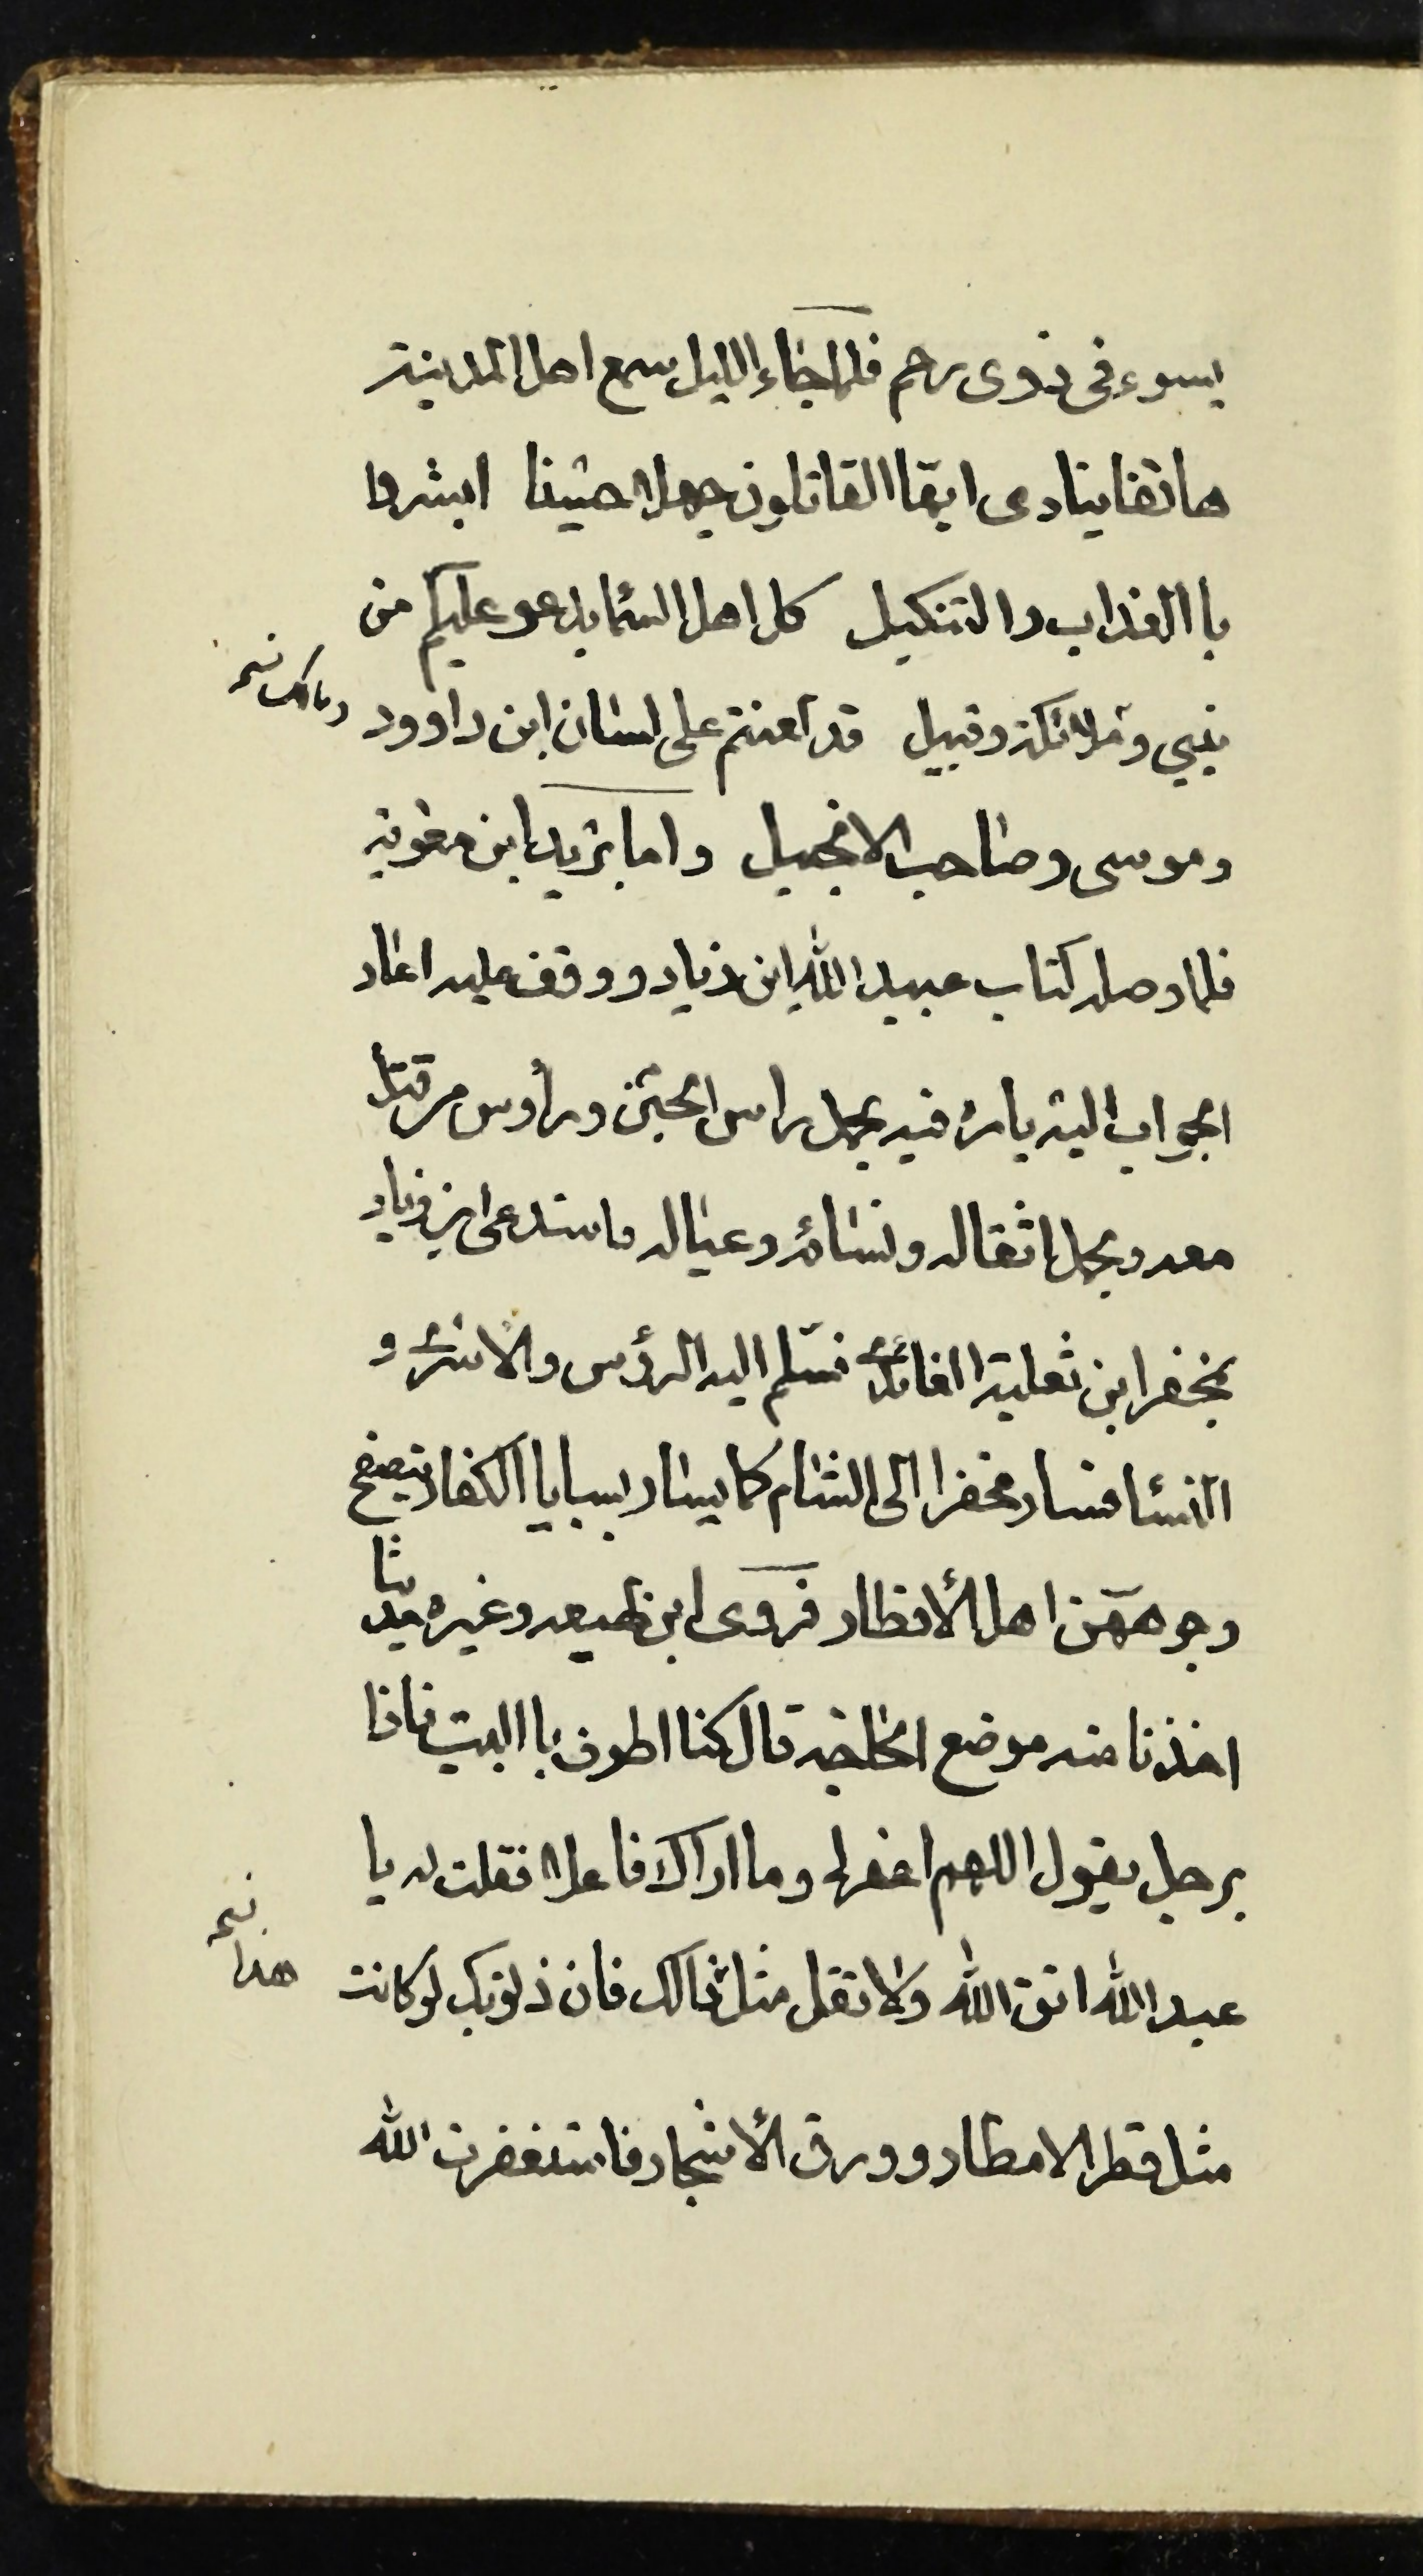 بسوء في ذوى رحم فلما جاء الليل سمع اهل المدينة
هاتفا ينادى ايها القاتلون جهلا حسينا ابشروا
با العذاب والتنكيل كل اهل السما يدعو عليكم من
نبي وملائكة وقبيل قد لعنتم على لسان ابن داوود
ومالك نسخه
وموسى وصاحب الانجيل واما يزيد ابن معوية
فلما وصله كتاب عبيد الله ابن زياد ووقف عليه اعاد
الجواب اليه يامره فيه بحمل راس الحسين ورأوس من قتل
معه وبحمل اثقاله ونسائه وعياله فاستدعى ابن زياد
بمخفر ابن ثعلبة العائذى فسلم اليه الرؤس والاسرى و
النسا فسار مخفرا الى الشام كما يسار بسبايا الكفار يتصفح
وجوههن اهل الأقطار فروى ابن لهيعه وغيره حديثا
اخذنا منه موضع الحاجة قال كنا اطوف با البيت فاذا
برجل يقول اللهم اغفر لى وما اراك فاعلا فقلت له يا
عبد الله اتق الله ولا تقل مثل ذالك فان ذنوبك لو كانت
هذا نسخه
مثل قطر الامطار وورق الأشجار فاستغفرت الله